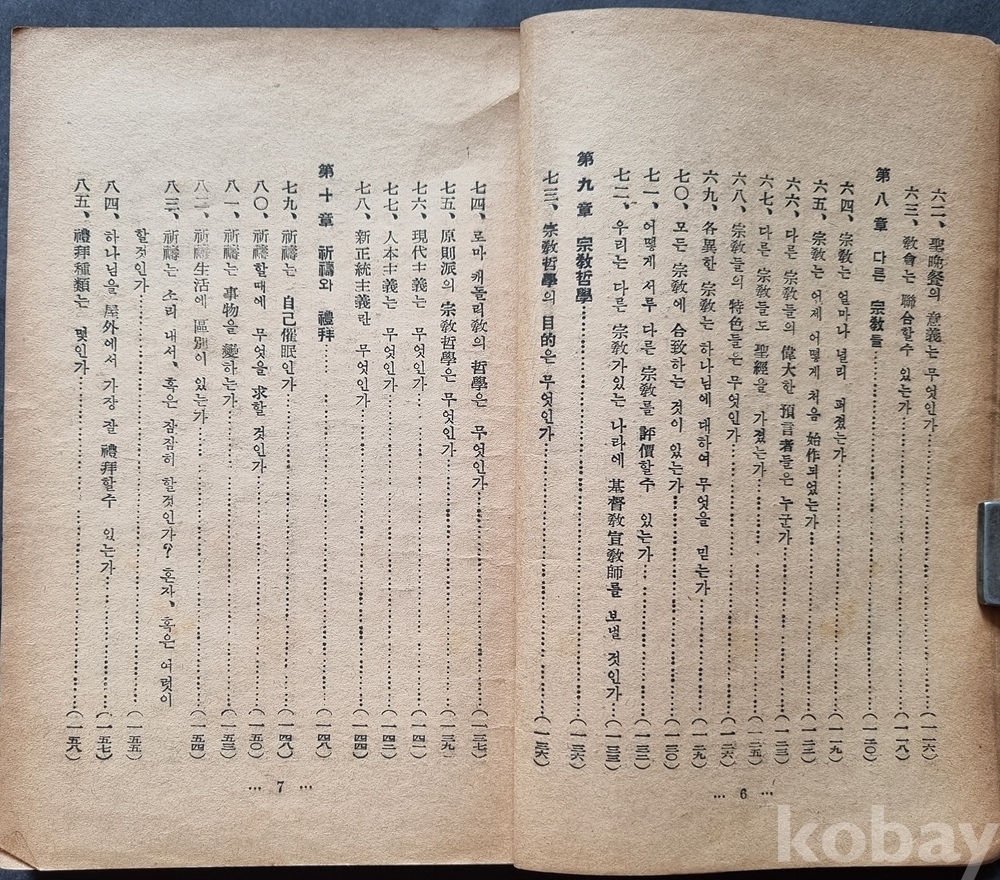 六二、聖晩餐의 意義는 무엇인가……(一一六)
六三、敎會는 聯合할수 있는가……(一一八)
第八章 다른 宗敎들……(一二〇)
六四、宗敎는 얼마나 널리 퍼졌는가……(一一九)
六五、宗敎는 언제 어떻게 처음 始作되었는가……(一二一)
六六、다른 宗敎들의 偉大한 預言者들은 누군가……(一二三)
六七、다른 宗敎들도 聖經을 가졌는가……(一二五)
六八、宗敎들의 特色들은 무엇인가……(一二六)
六九、各異한 宗敎는 하나님에 대하여 무엇을 믿는가……(一二九)
七〇、모든 宗敎에 合致하는 것이 있는가……(一三〇)
七一、어떻게 서루 다른 宗敎를 評價할수 있는가……(一三一)
七二、우리는 다른 宗敎가있는 나라에 基督敎宣敎師를 보낼 것인가……(一三三)
第九章 宗敎哲學……(一三六)
七三、宗敎哲學의 目的은 무엇인가……(一三六)
… 6 …
七四、로마 캐돌릭敎의 哲學은 무엇인가……(一三七)
七五、原則派의 宗敎哲學은 무엇인가……(一三九)
七六、現代主義는 무엇인가……(一四一)
七七、人本主義는 무엇인가……(一四二)
七八、新正統主義란 무엇인가……(一四四)
第十章 祈禱와 禮拜……(一四八)
七九、祈禱는 自己催眠인가……(一四八)
八〇、祈禱할때에 무엇을 求할 것인가……(一五〇)
八一、祈禱는 事物을 變하는가……(一五三)
八二、祈禱生活에 區別이 있는가……(一五四)
八三、祈禱는 소리 내서、혹은 잠잠히 할것인가? 혼자、혹은 여럿이
할것인가……(一五五)
八四、하나님을 屋外에서 가장 잘 禮拜할수 있는가……(一五七)
八五、禮拜種類는 몇인가……(一五八)
… 7 …
kobay